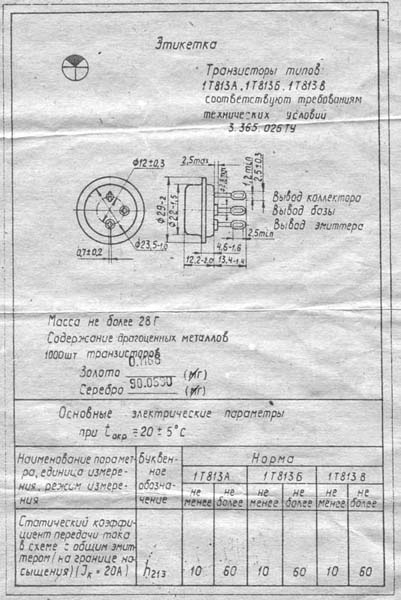 Этикетка
Транзисторы типов
1Т813А, 1Т813Б, 1Т813В
соответствуют требованиям
технических условий
3.365.026ТУ
ф12±0,3
2,5max
1,2min
2,5±0,3
ф29-2
ф22-1,5
Вывод коллектора
Вывод базы
Вывод эмиттера
ф23,5-1,0
0,7±0,2
2,5min
4,6-1,6
12,2-2,0
13,4-1,4
Масса не более 28г
Содержание драгоценных металлов
1000шт транзисторов
Золото (г)
Серебро (г)
Основные электрические параметры
при tокр = 20 ± 5°С
Наименование парамет-
ра, единица измере-
ния, режим измере-
ния
Буквен-
ное
обозна-
чение
Норма
1Т813А 1Т813Б 1Т813В
не менее не более не менее не более не менее не более
Статический коэффи-
циент передачи тока
в схеме с общим эмит-
тером (на границе на-
сыщения) (Jк = 20А) h21Э 10 60 10 60 10 60